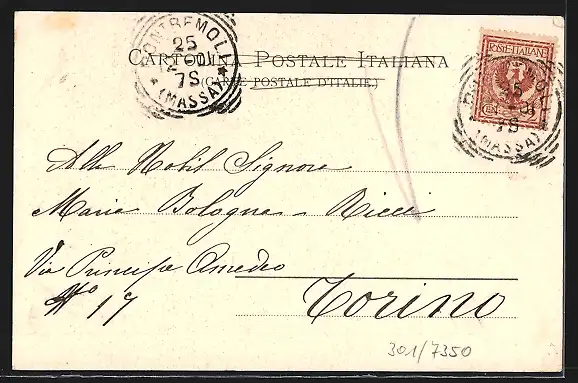 PONTREMOLI
25
7S
(MASSA)
CARTOLINA POSTALE ITALIANA
(CARTE POSTALE D'ITALIE.)
POSTE ITALIANE
7S
(MASSA)
Alla Nobil Signora
Maria Bologna - Ricci
Via Principe Amedeo
No 17
Torino
301/7350